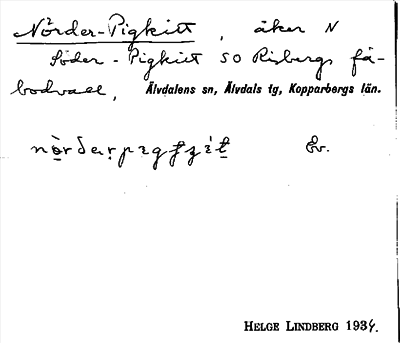 Nörder-Pigkitt, åker N
Söder-Pigkitt SO Risbergs fä-
bodvall, Älvdalens sn, Älvdals tg, Kopparbergs län.
Ev.
HELGE LINDBERG 1934.